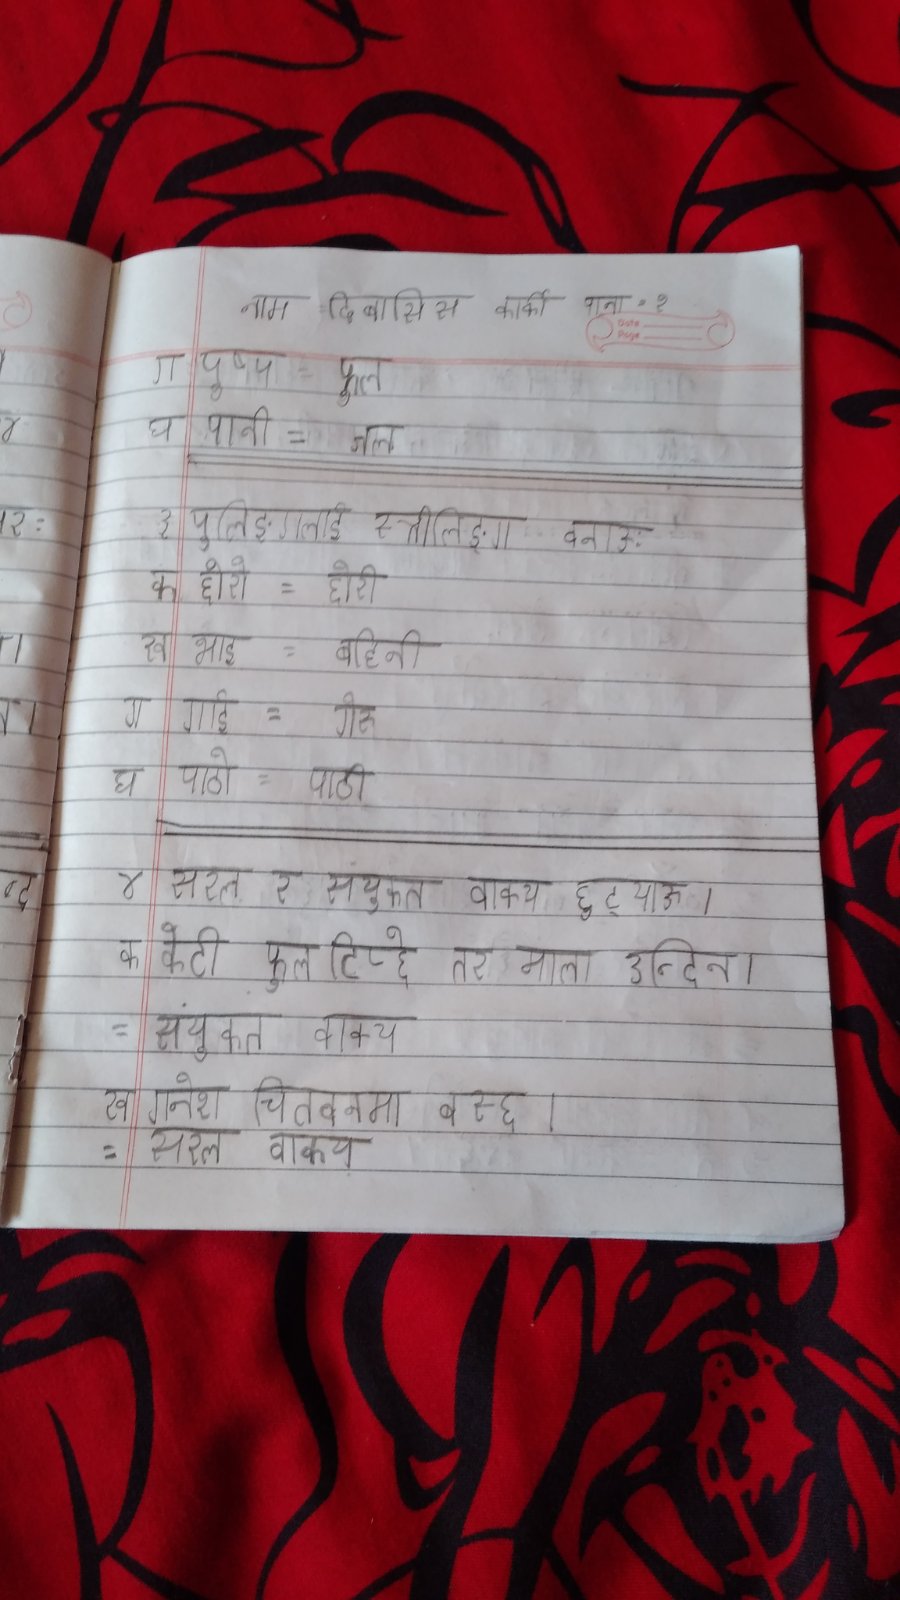 नाम दिबासिस कार्की पाना - २
Date
Page
ग पुष्प = फुल
घ पानी = जल
३ पुलिङ्गलाई स्त्रीलिङ्ग बनाऊ:
क छोरो = छोरी
ख भाइ = बहिनी
ग गाई = गोरु
घ पाठो = पाठी
४ सरल र संयुकत वाक्य छुट्याऊ ।
क केटी फुल टिप्छे तर माला उन्दिन ।
= संयुकत वाक्य
ख गनेश चितवनमा बस्छ ।
= सरल वाक्य